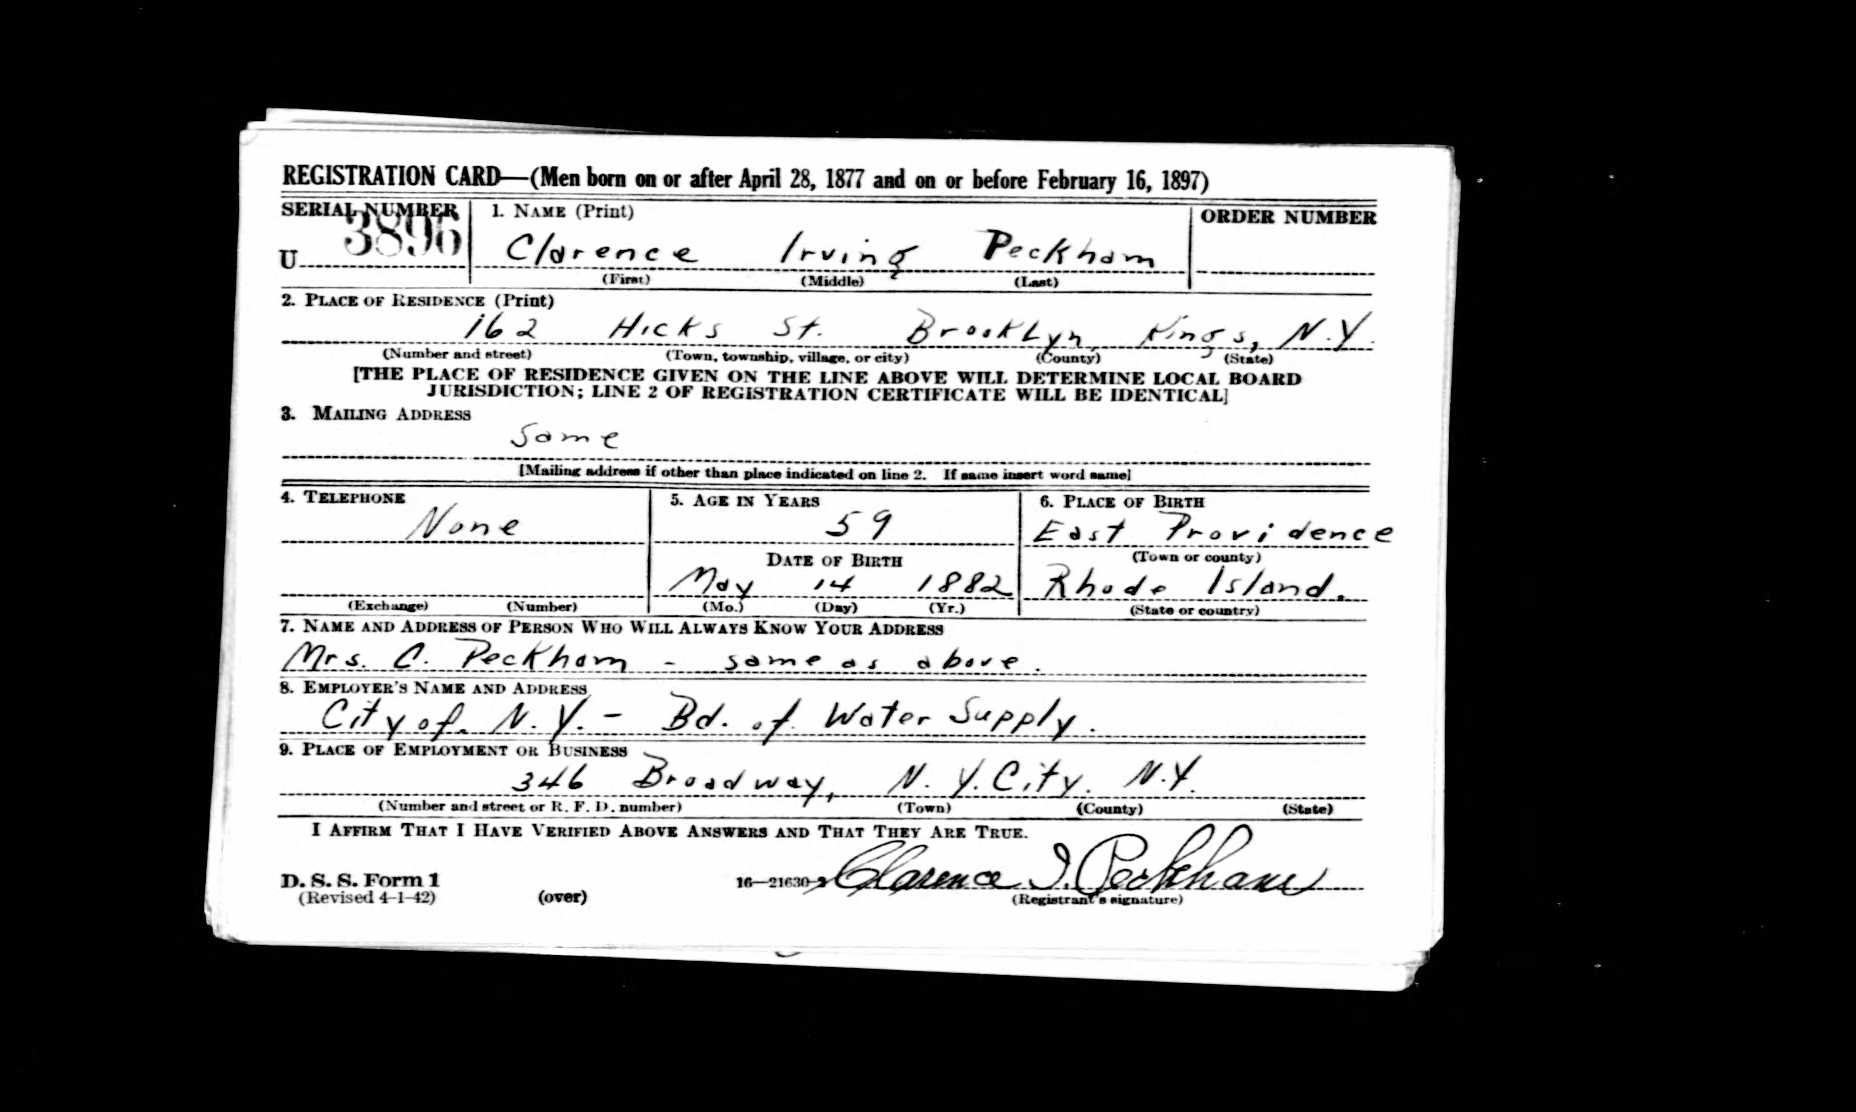 REGISTRATION CARD—(Men born on or after April 28, 1877 and on or before February 16, 1897)
SERIAL NUMBER 1. NAME (Print) ORDER NUMBER
U 3896 Clarence Irving Peckham
(First) (Middle) (Last)
2. PLACE OF RESIDENCE (Print)
162 Hicks St. Brooklyn, Kings, N.Y.
(Number and street) (Town, township, village, or city) (County) (State)
[THE PLACE OF RESIDENCE GIVEN ON THE LINE ABOVE WILL DETERMINE LOCAL BOARD
JURISDICTION; LINE 2 OF REGISTRATION CERTIFICATE WILL BE IDENTICAL]
3. MAILING ADDRESS
Same
[Mailing address if other than place indicated on line 2. If same insert word same]
4. TELEPHONE 5. AGE IN YEARS 6. PLACE OF BIRTH
None 59 East Providence
DATE OF BIRTH (Town or county)
May 14 1882 Rhode Island.
(Exchange) (Number) (Mo.) (Day) (Yr.) (State or country)
7. NAME AND ADDRESS OF PERSON WHO WILL ALWAYS KNOW YOUR ADDRESS
Mrs. C. Peckham - same as above.
8. EMPLOYER'S NAME AND ADDRESS
City of N.Y. - Bd. of Water Supply.
9. PLACE OF EMPLOYMENT OR BUSINESS
346 Broadway, N.Y. City. N.Y.
(Number and street or R. F. D. number) (Town) (County) (State)
I AFFIRM THAT I HAVE VERIFIED ABOVE ANSWERS AND THAT THEY ARE TRUE.
D. S. S. Form 1 16—21630-2 Clarence I. Peckham
(Revised 4-1-42) (over) (Registrant's signature)